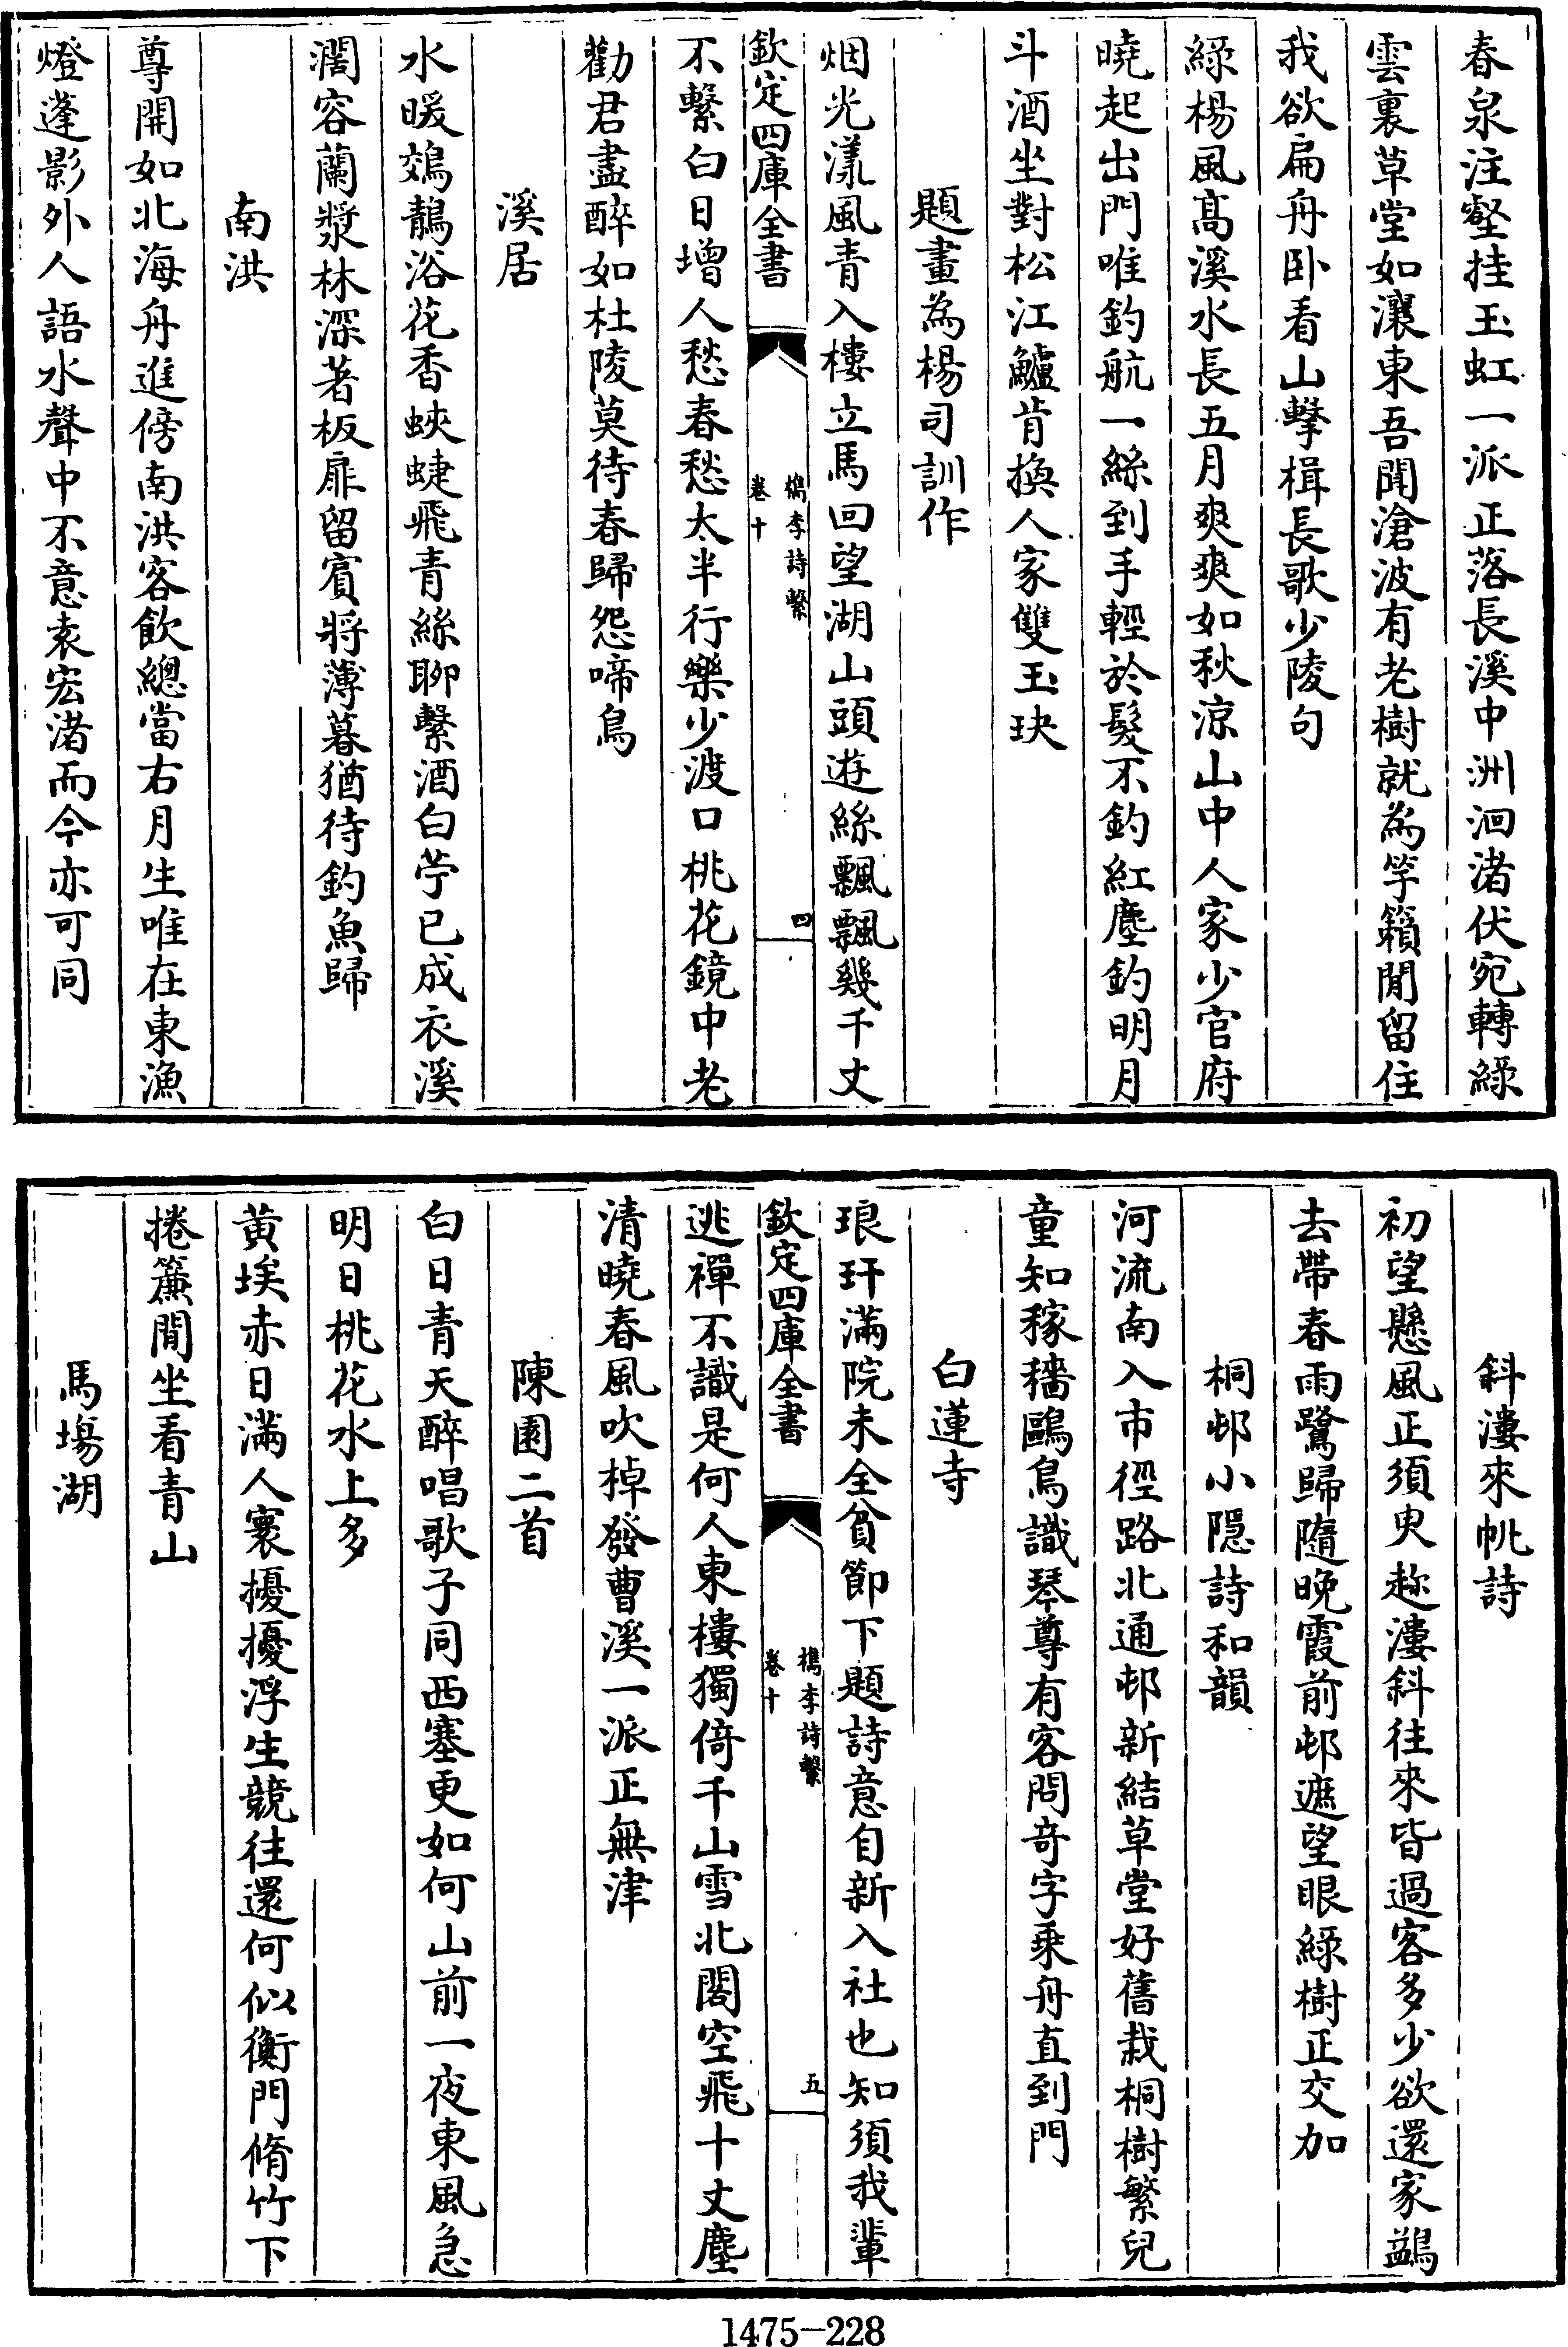 春泉注壑挂玉虹一派正落長溪中洲洄渚伏宛轉綠
雲裏草堂如瀼東吾聞滄波有老樹就為竽籟閒留住
我欲扁舟卧看山擊楫長歌少陵句
綠楊風髙溪水長五月爽爽如秋涼山中人家少官府
曉起出門唯釣航一絲到手輕於髮不釣紅塵釣明月
斗酒坐對松江鱸肯換人家雙玉玦
題畫為楊司訓作
烟光漾風青入樓立馬回望湖山頭遊絲飄飄幾千丈
欽定四庫全書
檇李詩繫
卷十
四
不繫白日增人愁春愁太半行樂少渡口桃花鏡中老
勸君盡醉如杜陵莫待春歸怨啼鳥
溪居
水暖鵁鶄浴花香蛺蜨飛青絲聊繫酒白苧已成衣溪
濶容蘭槳林深著板扉留賓將薄暮猶待釣魚歸
南洪
尊開如北海舟進傍南洪客飲總當右月生唯在東漁
燈蓬影外人語水聲中不意袁宏渚而今亦可同
斜漊來帆詩
初望懸風正須臾趂漊斜往來皆過客多少欲還家鷁
去帶春雨鷺歸隨晚霞前邨遮望眼綠樹正交加
桐邨小隠詩和韻
河流南入市徑路北通邨新結草堂好舊栽桐樹繁兒
童知稼穡鷗鳥識琴尊有客問竒字乗舟直到門
白蓮寺
琅玕滿院未全貧節下題詩意自新入社也知須我輩
欽定四庫全書
檇李詩繫
卷十
五
逃禪不識是何人東樓獨倚千山雪北閣空飛十丈塵
清曉春風吹棹發曹溪一派正無津
陳園二首
白日青天醉唱歌子同西塞更如何山前一夜東風急
明日桃花水上多
黄埃赤日滿人寰擾擾浮生競往還何似衡門脩竹下
捲簾閒坐看青山
馬塲湖
1475-228